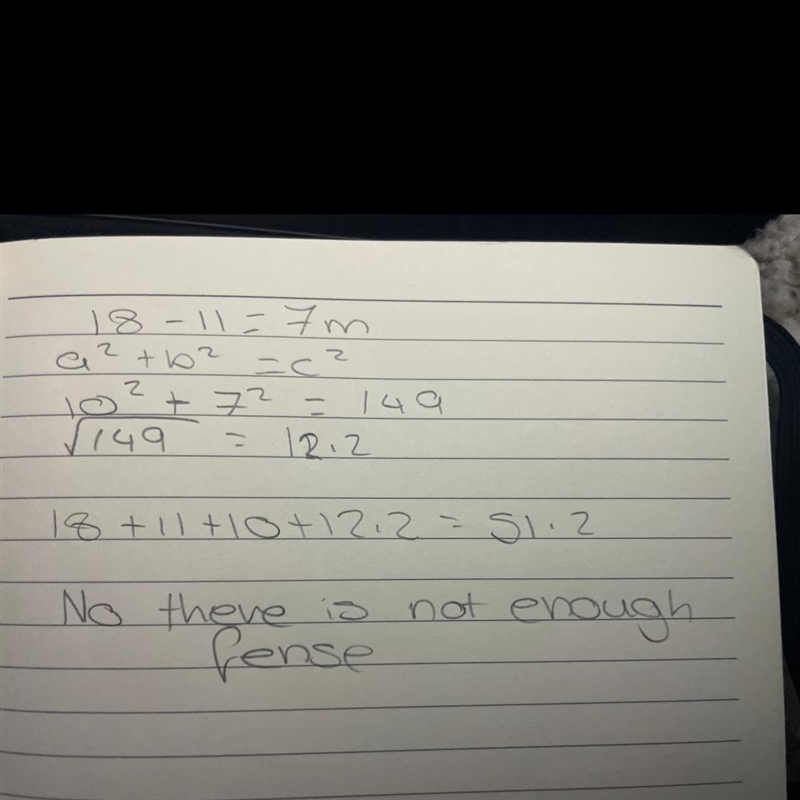 18 - 11 = 7m
a² + b² = c²
10² + 7² = 149
√149 = 12.2
18 + 11 + 10 + 12.2 = 51.2
No there is not enough
fense